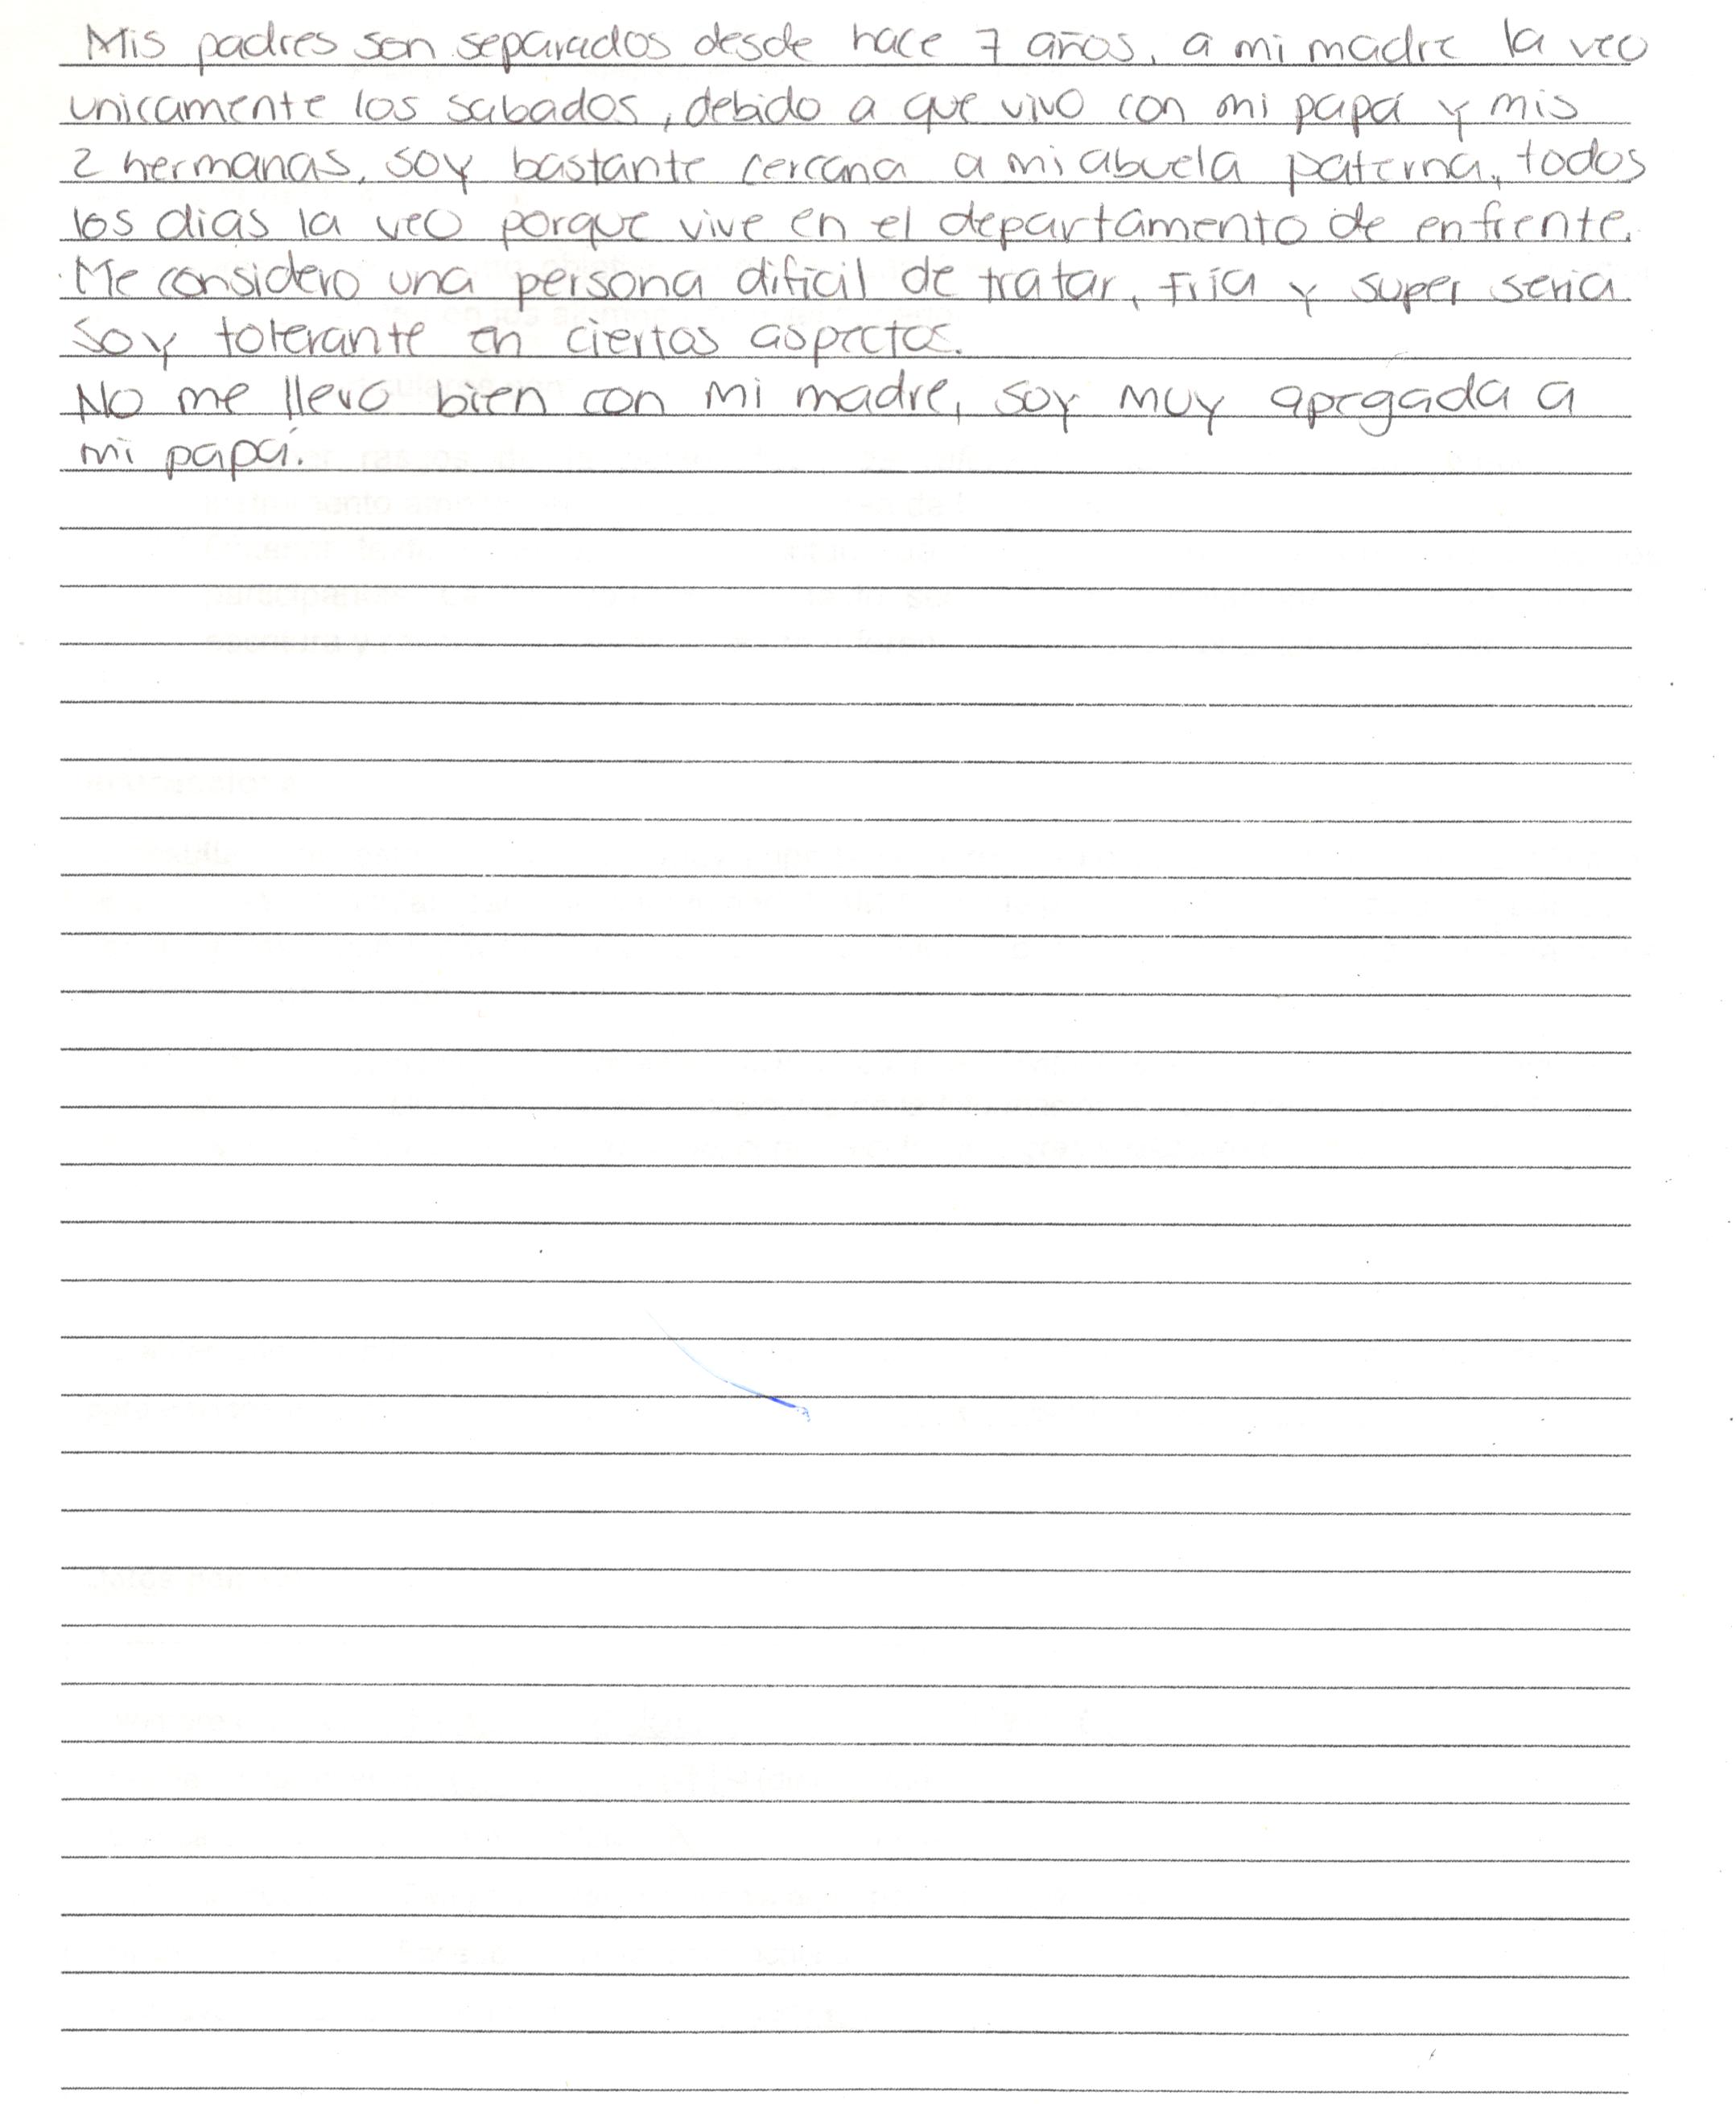 Mis padres son separados desde hace 7 años, a mi madre la veo
unicamente los sabados, debido a que vivo con mi papá y mis
2 hermanas, soy bastante cercana a mi abuela paterna, todos
los dias la veo porque vive en el departamento de enfrente.
Me considero una persona dificil de tratar, fria y super seria.
Soy tolerante en ciertos aspectos.
No me llevo bien con mi madre, soy muy apegada a
mi papá.